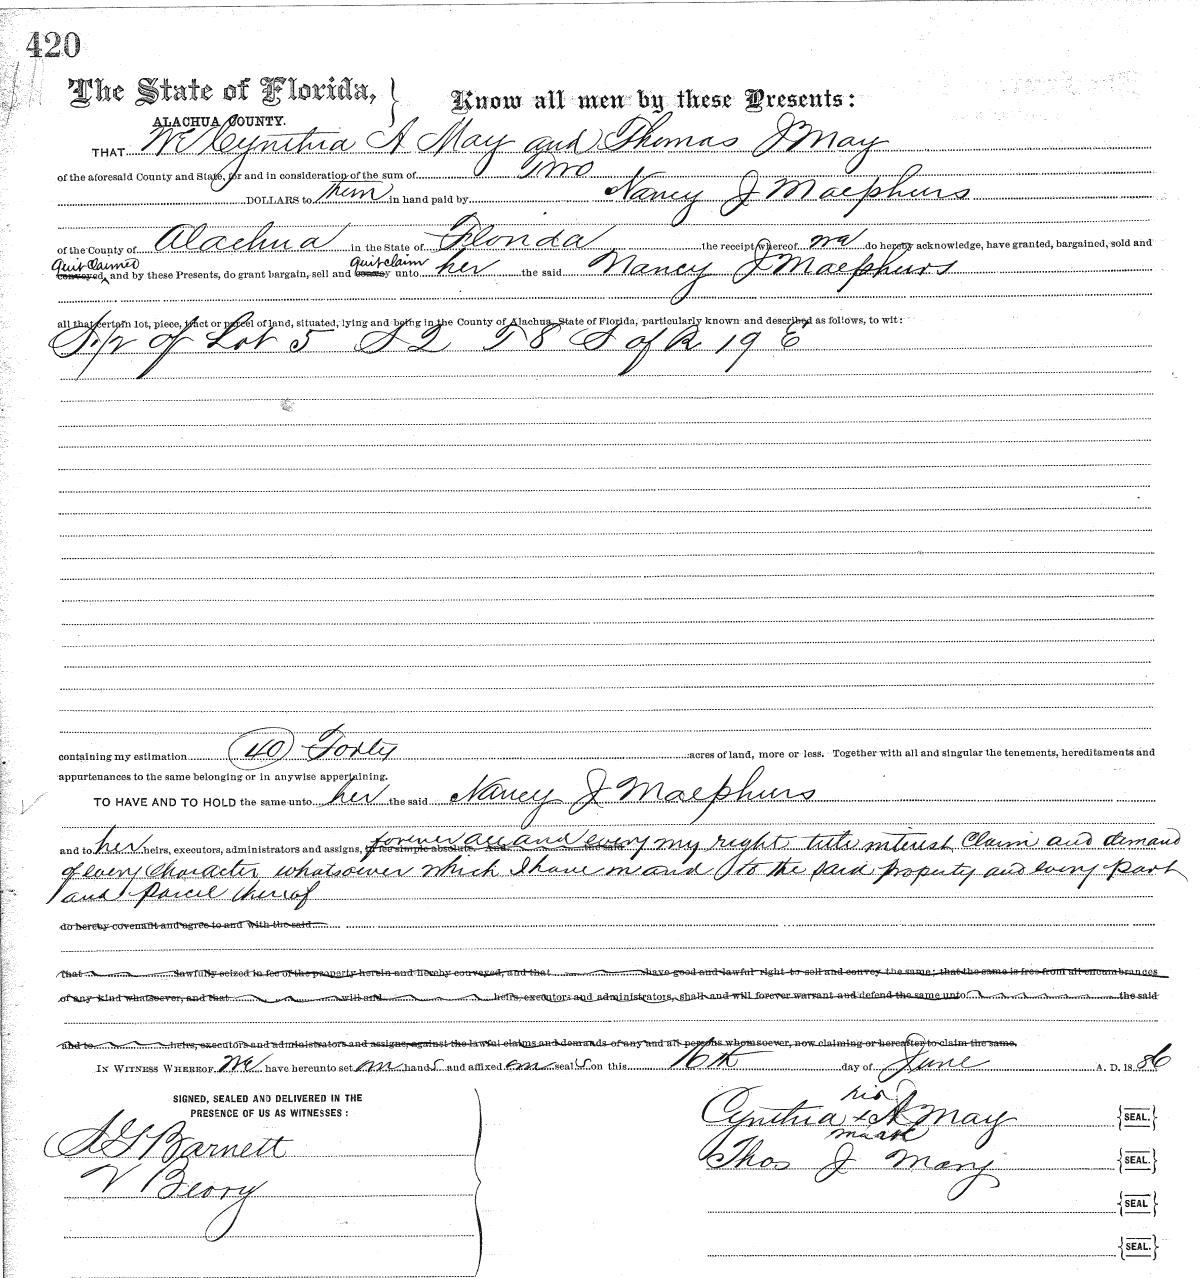 420
The State of Florida, } Know all men by these Presents:
ALACHUA COUNTY.
THAT We Cynthia A May and Thomas J May
of the aforesaid County and State, for and in consideration of the sum of Two
DOLLARS to them in hand paid by Nancy J Maephurs
of the County of Alachua in the State of Florida the receipt whereof we do hereby acknowledge, have granted, bargained, sold and
Quit Claimed quit claim
conveyed, and by these Presents, do grant bargain, sell and convey unto her the said Nancy J Maephurs
all that certain lot, piece, tract or parcel of land, situated, lying and being in the County of Alachua, State of Florida, particularly known and described as follows, to wit:
S 1/2 of Lot 5 S 2 T 8 S of R 19 E
containing my estimation (40) Forty acres of land, more or less. Together with all and singular the tenements, hereditaments and
appurtenances to the same belonging or in anywise appertaining.
TO HAVE AND TO HOLD the same unto her the said Nancy J Maephurs
and to her heirs, executors, administrators and assigns, in fee simple absolute. And the said forever all and every my right title interest Claim and demand
of every Character whatsoever which I have in and to the said property and every part
and parcel thereof
do hereby covenant and agree to and with the said
that lawfully seized in fee of the property herein and hereby conveyed, and that have good and lawful right to sell and convey the same; that the same is free from all encumbrances
of any kind whatsoever, and that will and heirs, executors and administrators, shall and will forever warrant and defend the same unto the said
and to heirs, executors and administrators and assigns, against the lawful claims and demands of any and all persons whomsoever, now claiming or hereafter to claim the same.
IN WITNESS WHEREOF, We have hereunto set our hands and affixed our seals on this 16th day of June A. D. 1886
SIGNED, SEALED AND DELIVERED IN THE
PRESENCE OF US AS WITNESSES:
his
Cynthia x A May {SEAL.}
mark
S G Barnett
Thos J May {SEAL.}
V Beory
{SEAL}
{SEAL.}